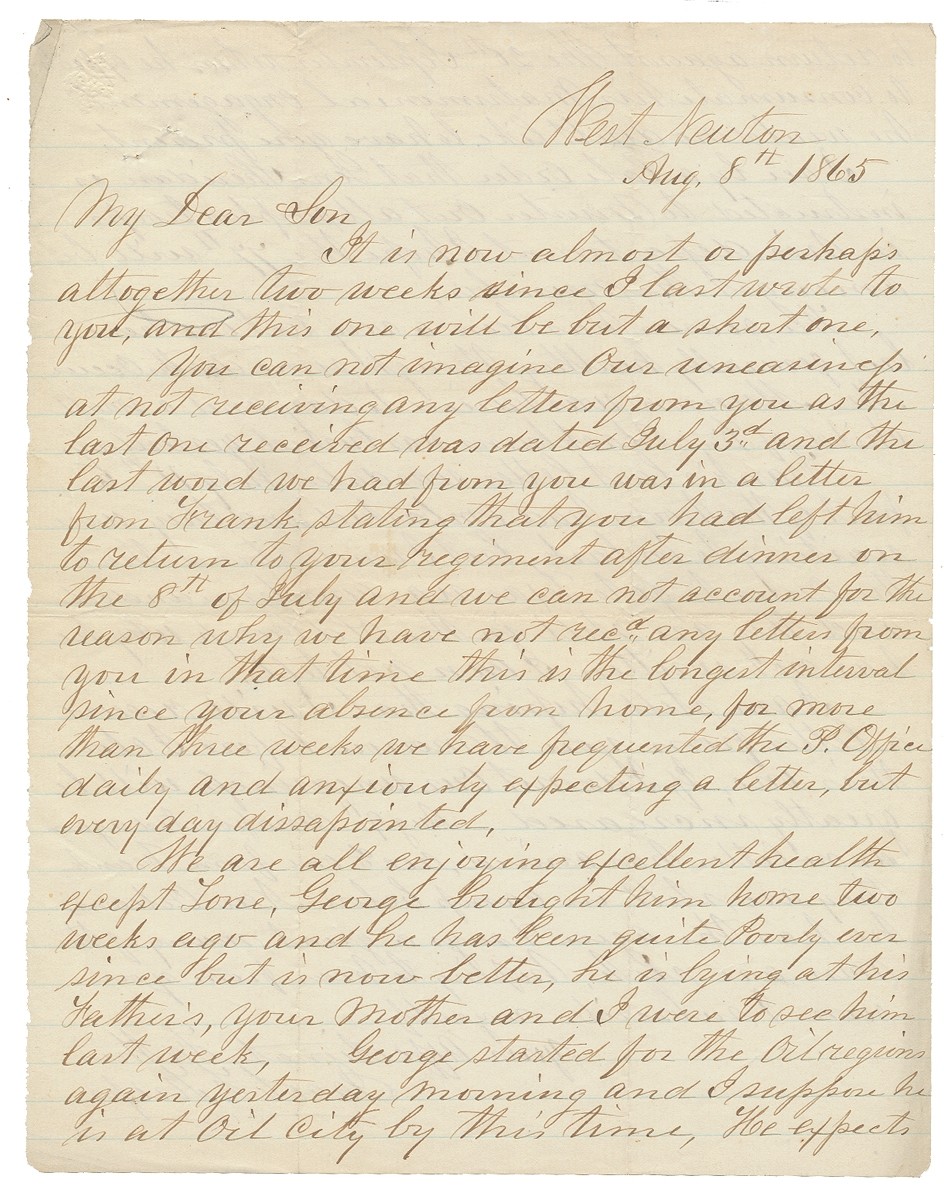 West Newton
Aug. 8th 1865
My Dear Son,
It is now almost or perhaps
altogether two weeks since I last wrote to
you, and this one will be but a short one,
You can not imagine Our uneasiness
at not receiving any letters from you as the
last one received was dated July 3d and the
last word we had from you was in a letter
from Frank stating that you had left him
to return to your regiment after dinner on
the 8th of July and we can not account for the
reason why we have not recd any letters from
you in that time this is the longest interval
since your absence from home, for more
than three weeks we have frequented the P. Office
daily and anxiously expecting a letter, but
every day dissapointed,
We are all enjoying excellent health
except Tone, George brought him home two
weeks ago and he has been quite Poorly ever
since but is now better, he is lying at his
Father's, your Mother and I were to see him
last week, George started for the Oil regions
again yesterday morning and I suppose he
is at Oil City by this time, He expects